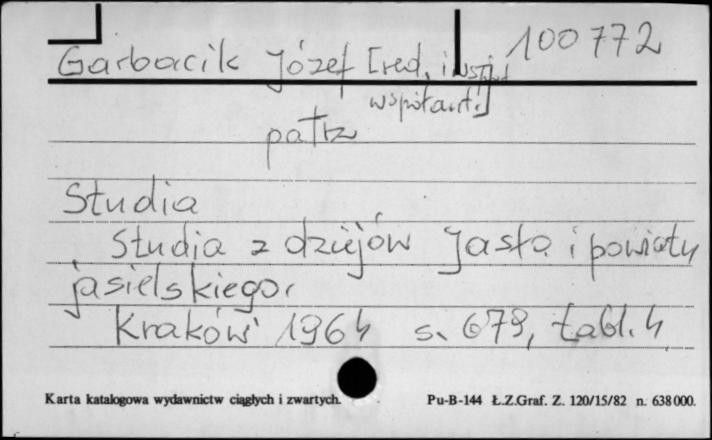 100 772
Garbacik Józef [red. i wstęp
współaut.]
patrz
Studia
Studia z dziejów Jasła i powiatu
jasielskiego.
Kraków 1964 s. 679, tabl. 4
Karta katalogowa wydawnictw ciągłych i zwartych.
Pu-B-144 Ł.Z.Graf. Z. 120/15/82 n. 638000.